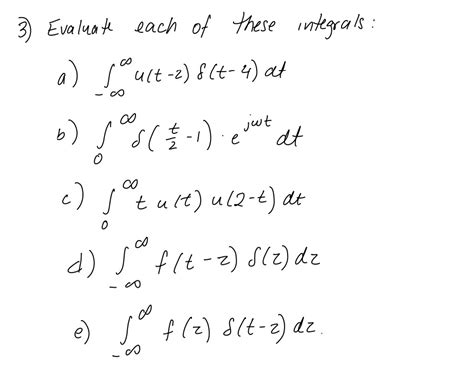 3) Evaluate each of these integrals:
a) ∫_{-∞}^{∞} u(t-2) δ(t-4) dt
b) ∫_{0}^{∞} δ(t/2 -1) · e^{jwt} dt
c) ∫_{0}^{∞} t u(t) u(2-t) dt
d) ∫_{-∞}^{∞} f(t-z) δ(z) dz
e) ∫_{-∞}^{∞} f(z) δ(t-z) dz.